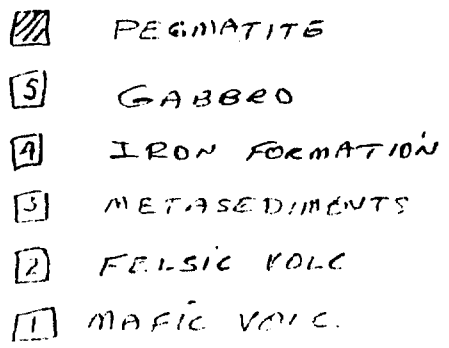 PEGMATITE
5 GABBRO
4 IRON FORMATION
3 METASEDIMENTS
2 FELSIC VOLC
1 MAFIC VOLC.